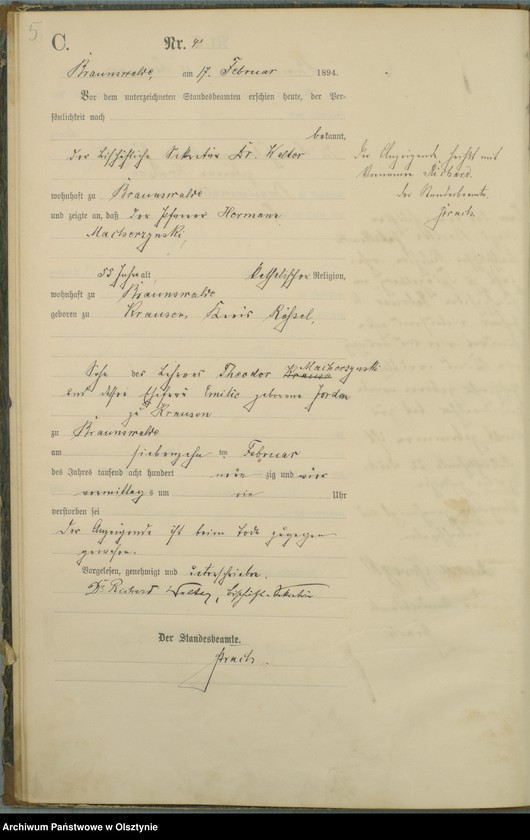 5
C.
Nr. 4
Braunswalde, am 17. Februar 1894.
Vor dem unterzeichneten Standesbeamten erschien heute, der Per-
sönlichkeit nach
bekannt,
der bischöfliche Sekretär Dr. Walter
wohnhaft zu Braunswalde
und zeigte an, daß der Pfarrer Hermann
Macherzynski,
55 Jahr alt, katholischer Religion,
wohnhaft zu Braunswalde
geboren zu Krausen, Kreis Rößel,
Sohn des Lehrers Theodor Macherzynski
und dessen Ehefrau Emilie geborene Jordan
zu Krausen
zu Braunswalde
am siebenzehn ten Februar
des Jahres tausend acht hundert neun zig und vier
vormittags um vier Uhr
verstorben sei
Der Anzeigende ist beim Tode zugegen
gewesen.
Vorgelesen, genehmigt und unterschrieben.
Dr. Richard , bischöfl. Sekretär
Der Standesbeamte.
Der Anzeigende heißt mit
Vornamen Richard.
der Standesbeamte,
Archiwum Państwowe w Olsztynie